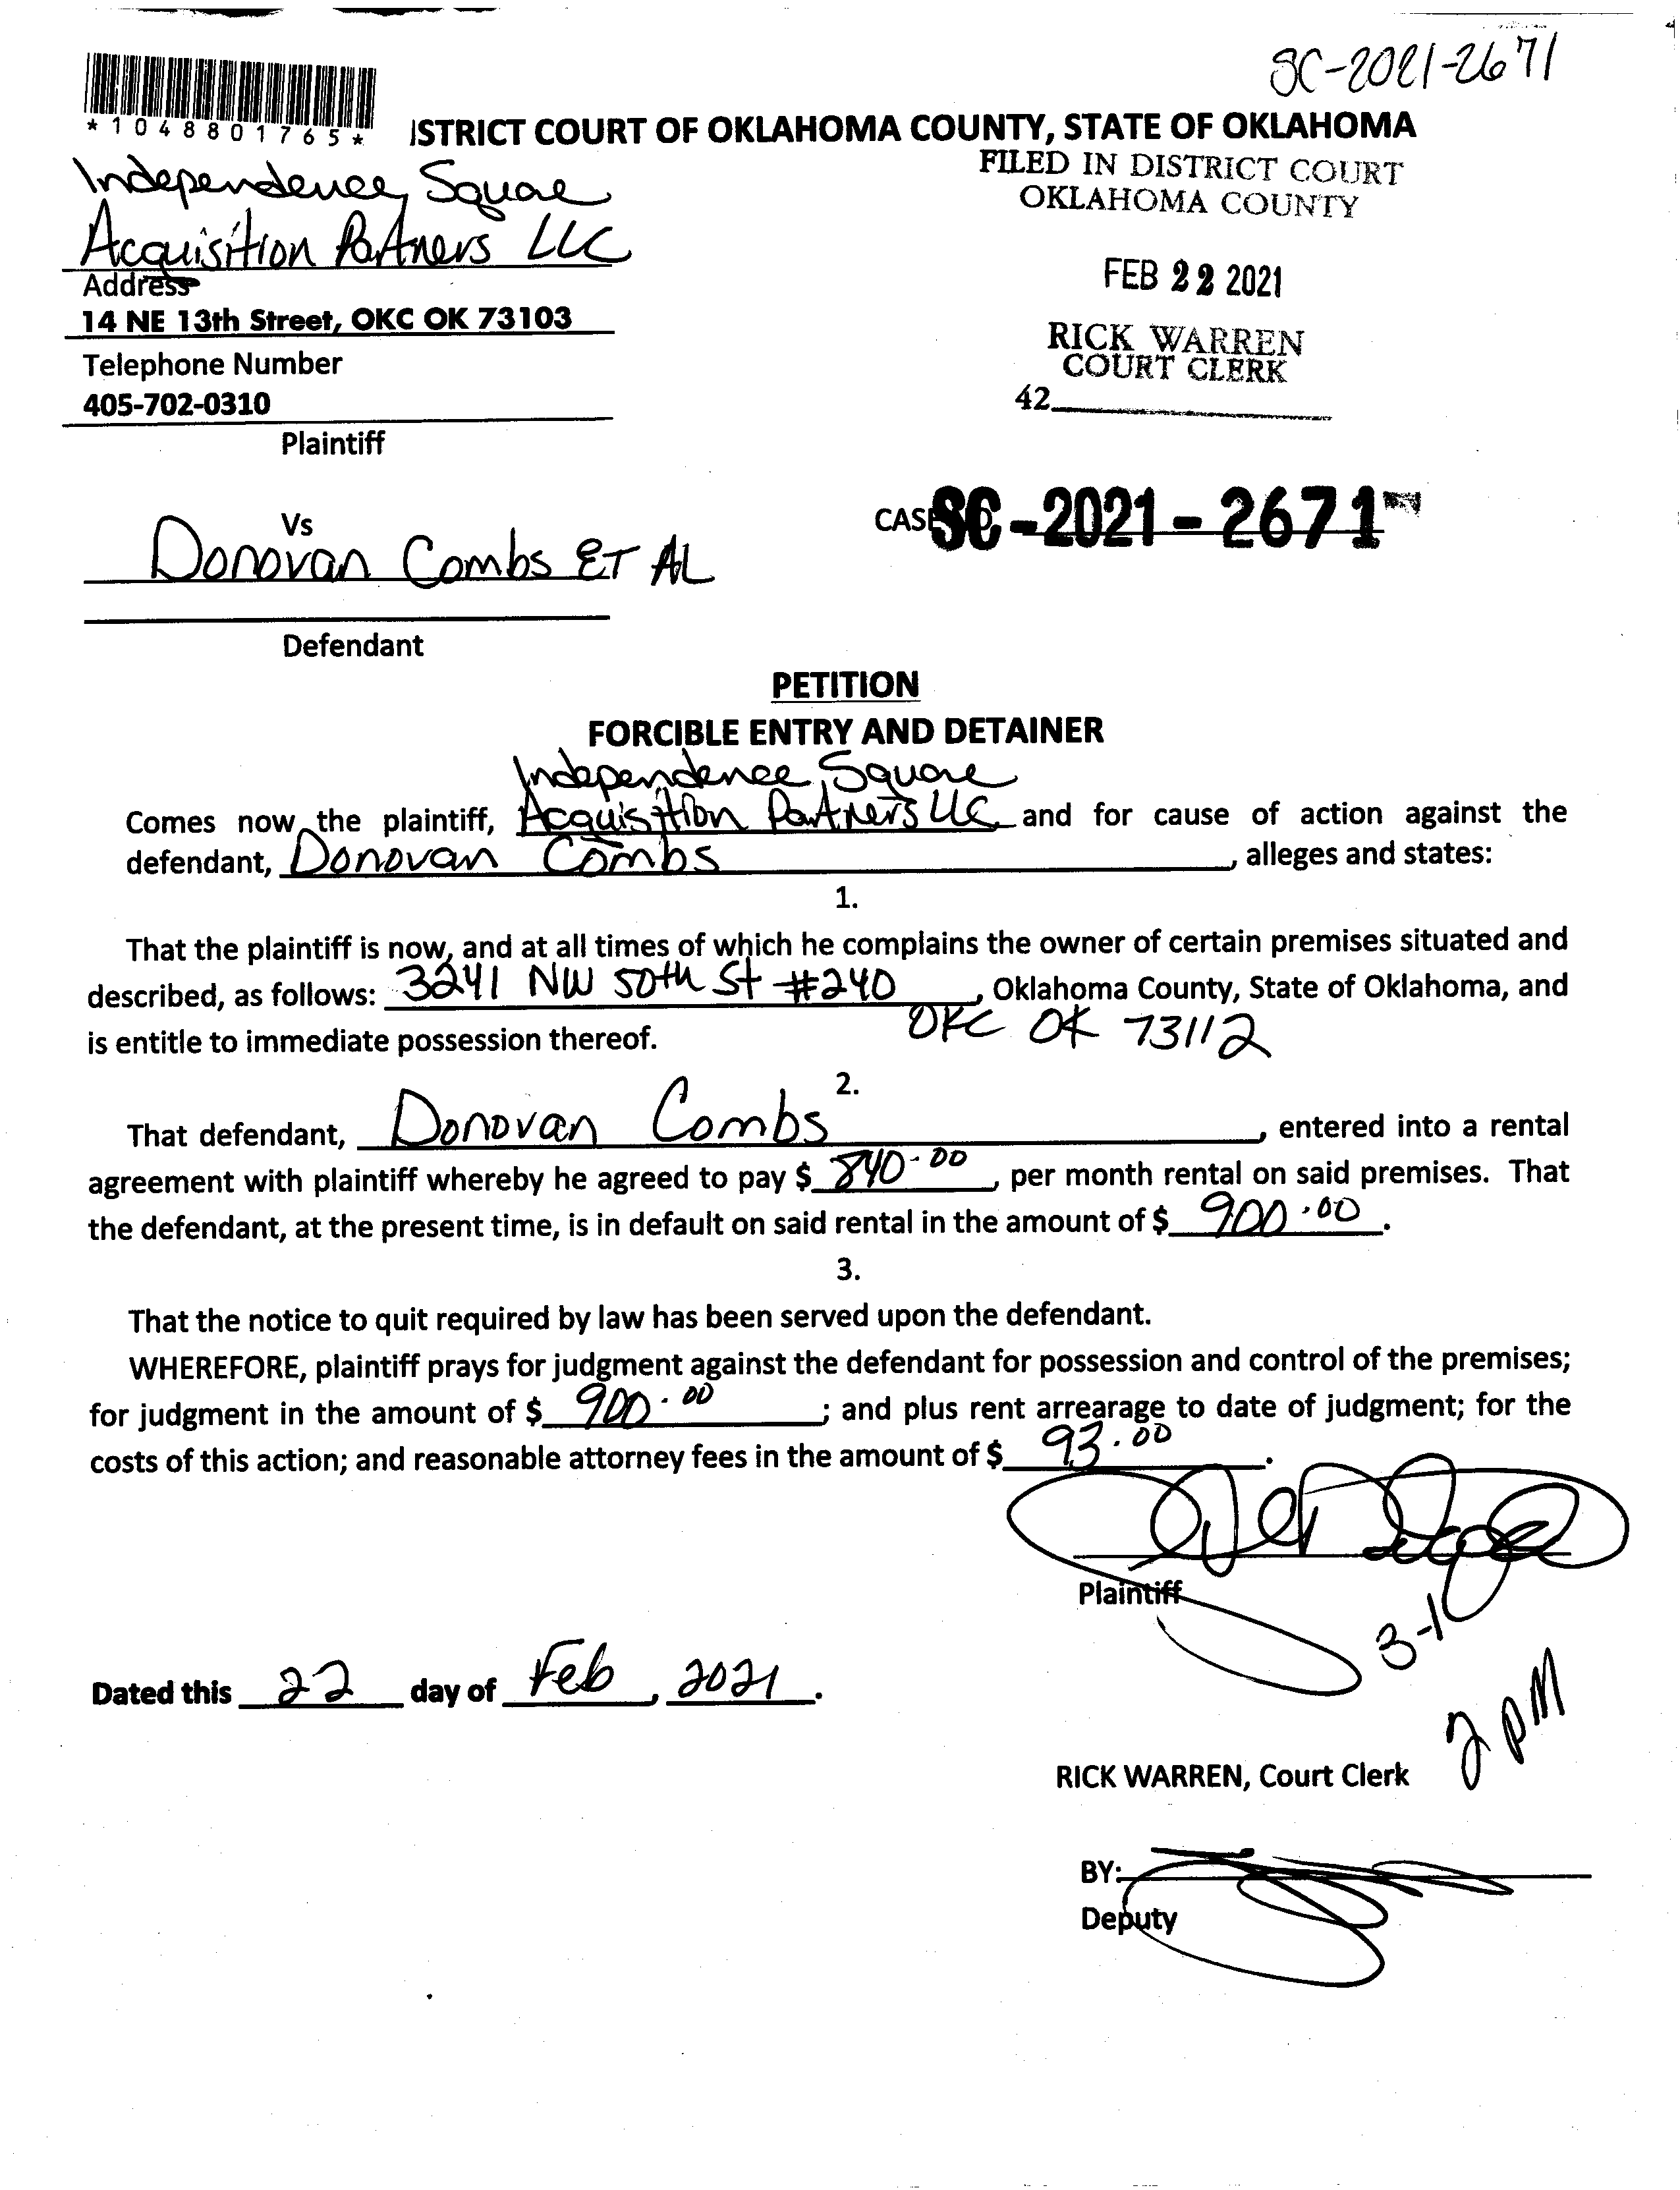 SC-2021-2671
*1048801765*
ISTRICT COURT OF OKLAHOMA COUNTY, STATE OF OKLAHOMA
FILED IN DISTRICT COURT
OKLAHOMA COUNTY
Independence Square
Acquisition Partners LLC
Address
14 NE 13th Street, OKC OK 73103
Telephone Number
405-702-0310
Plaintiff
FEB 22 2021
RICK WARREN
COURT CLERK
42
Vs
Donovan Combs ET AL
Defendant
CASE SC-2021-2671
PETITION
FORCIBLE ENTRY AND DETAINER
Independence Square
Comes now the plaintiff, Acquisition Partners LLC and for cause of action against the
defendant, Donovan Combs, alleges and states:
1.
That the plaintiff is now, and at all times of which he complains the owner of certain premises situated and
described, as follows: 3241 NW 50th St #240, Oklahoma County, State of Oklahoma, and
is entitle to immediate possession thereof. OKC OK 73112
2.
That defendant, Donovan Combs, entered into a rental
agreement with plaintiff whereby he agreed to pay $ 840.00, per month rental on said premises. That
the defendant, at the present time, is in default on said rental in the amount of $ 900.00.
3.
That the notice to quit required by law has been served upon the defendant.
WHEREFORE, plaintiff prays for judgment against the defendant for possession and control of the premises;
for judgment in the amount of $ 900.00; and plus rent arrearage to date of judgment; for the
costs of this action; and reasonable attorney fees in the amount of $ 93.00.
Plaintiff
Dated this 22 day of Feb, 2021.
2 PM
RICK WARREN, Court Clerk
BY:
Deputy